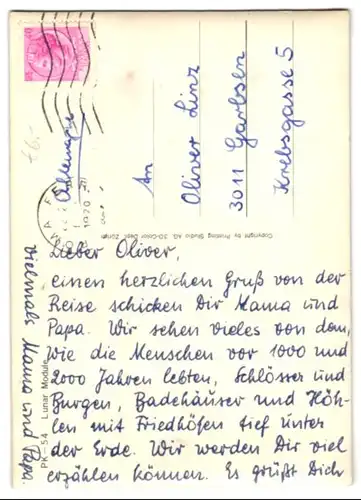 Alemagna
An
Oliver Linz
3011 Garbsen
Krebsgasse 5
Copyright by Printing Studio AG, 3D-Color Dept. Zürich
PK-54 Lunar Module
Lieber Oliver,
einen herzlichen Gruß von der
Reise schicken Dir Mama und
Papa. Wir sehen vieles von dem,
wie die Menschen vor 1000 und
2000 Jahren lebten, Schlösser und
Burgen, Badehäuser und Höh-
len mit Friedhöfen tief unter
der Erde. Wir werden Dir viel
erzählen können. Es grüßt Dich
vielmals Mama und Papa.